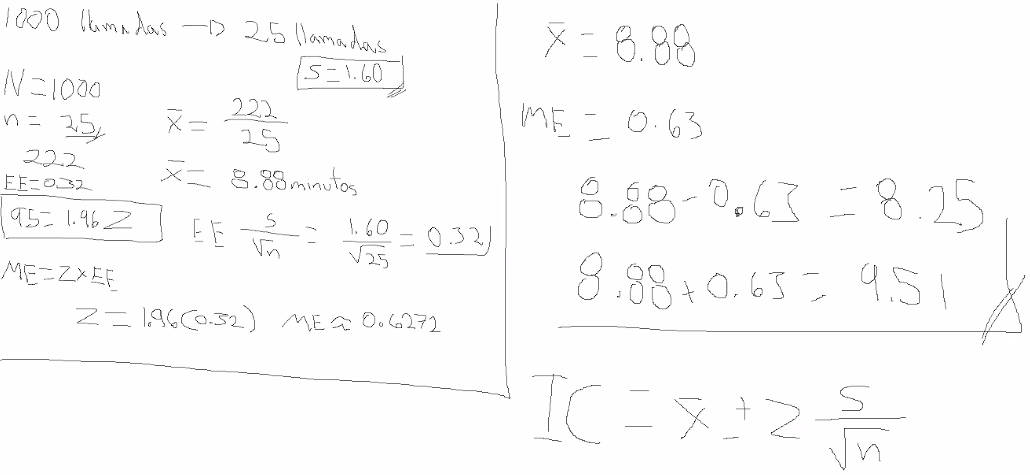 1000 llamadas → 25 llamadas
S=1.60
N=1000
n= 25
x̄= 222/25
222
x̄= 8.88minutos
EE=0.32
95=1.96 Z
EE s/√n = 1.60/√25 = 0.32
ME=Z×EE
Z=1.96(0.32) ME≈0.6272
x̄=8.88
ME = 0.63
8.88-0.63 = 8.25
8.88+0.63= 9.51
IC = x̄ ± Z s/√n